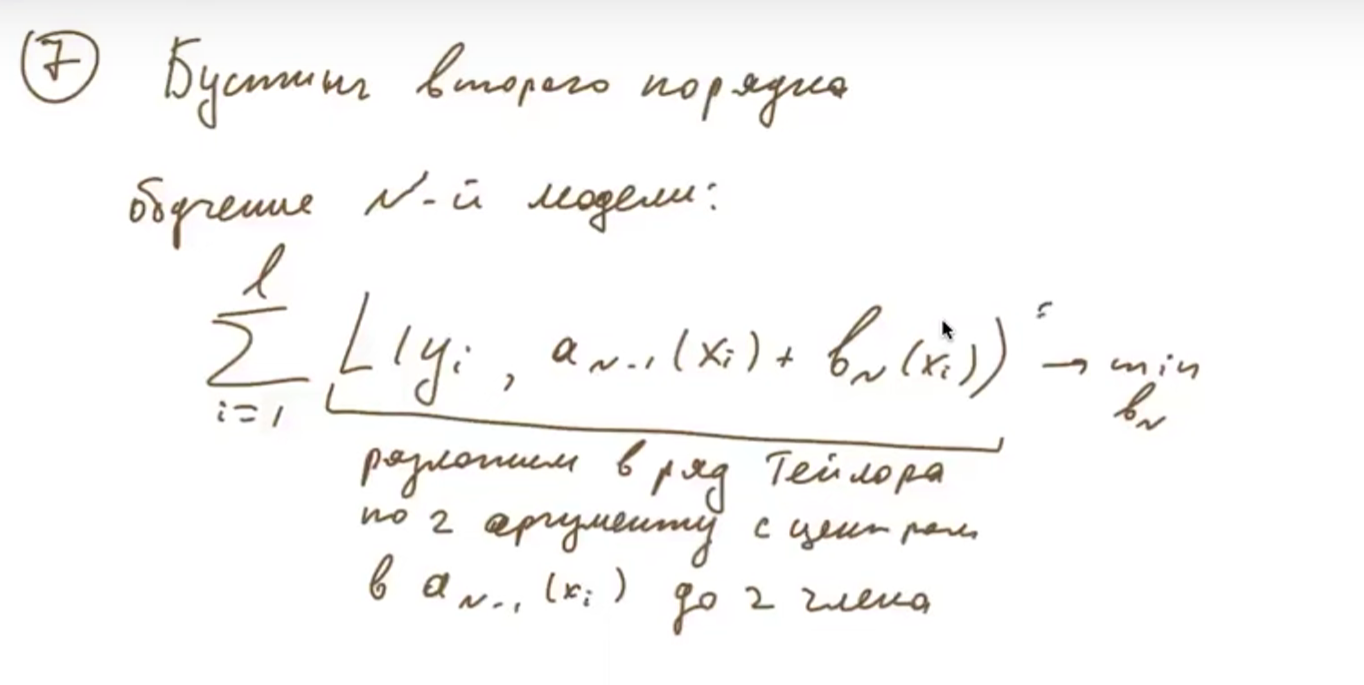 ⑦ Бустинг второго порядка
обучение N-й модели:
l
∑ L(yᵢ, a_{N-1}(xᵢ) + b_N(xᵢ)) → min
i=1 b_N
разложим в ряд Тейлора
по 2 аргументу с центром
в a_{N-1}(xᵢ) до 2 члена